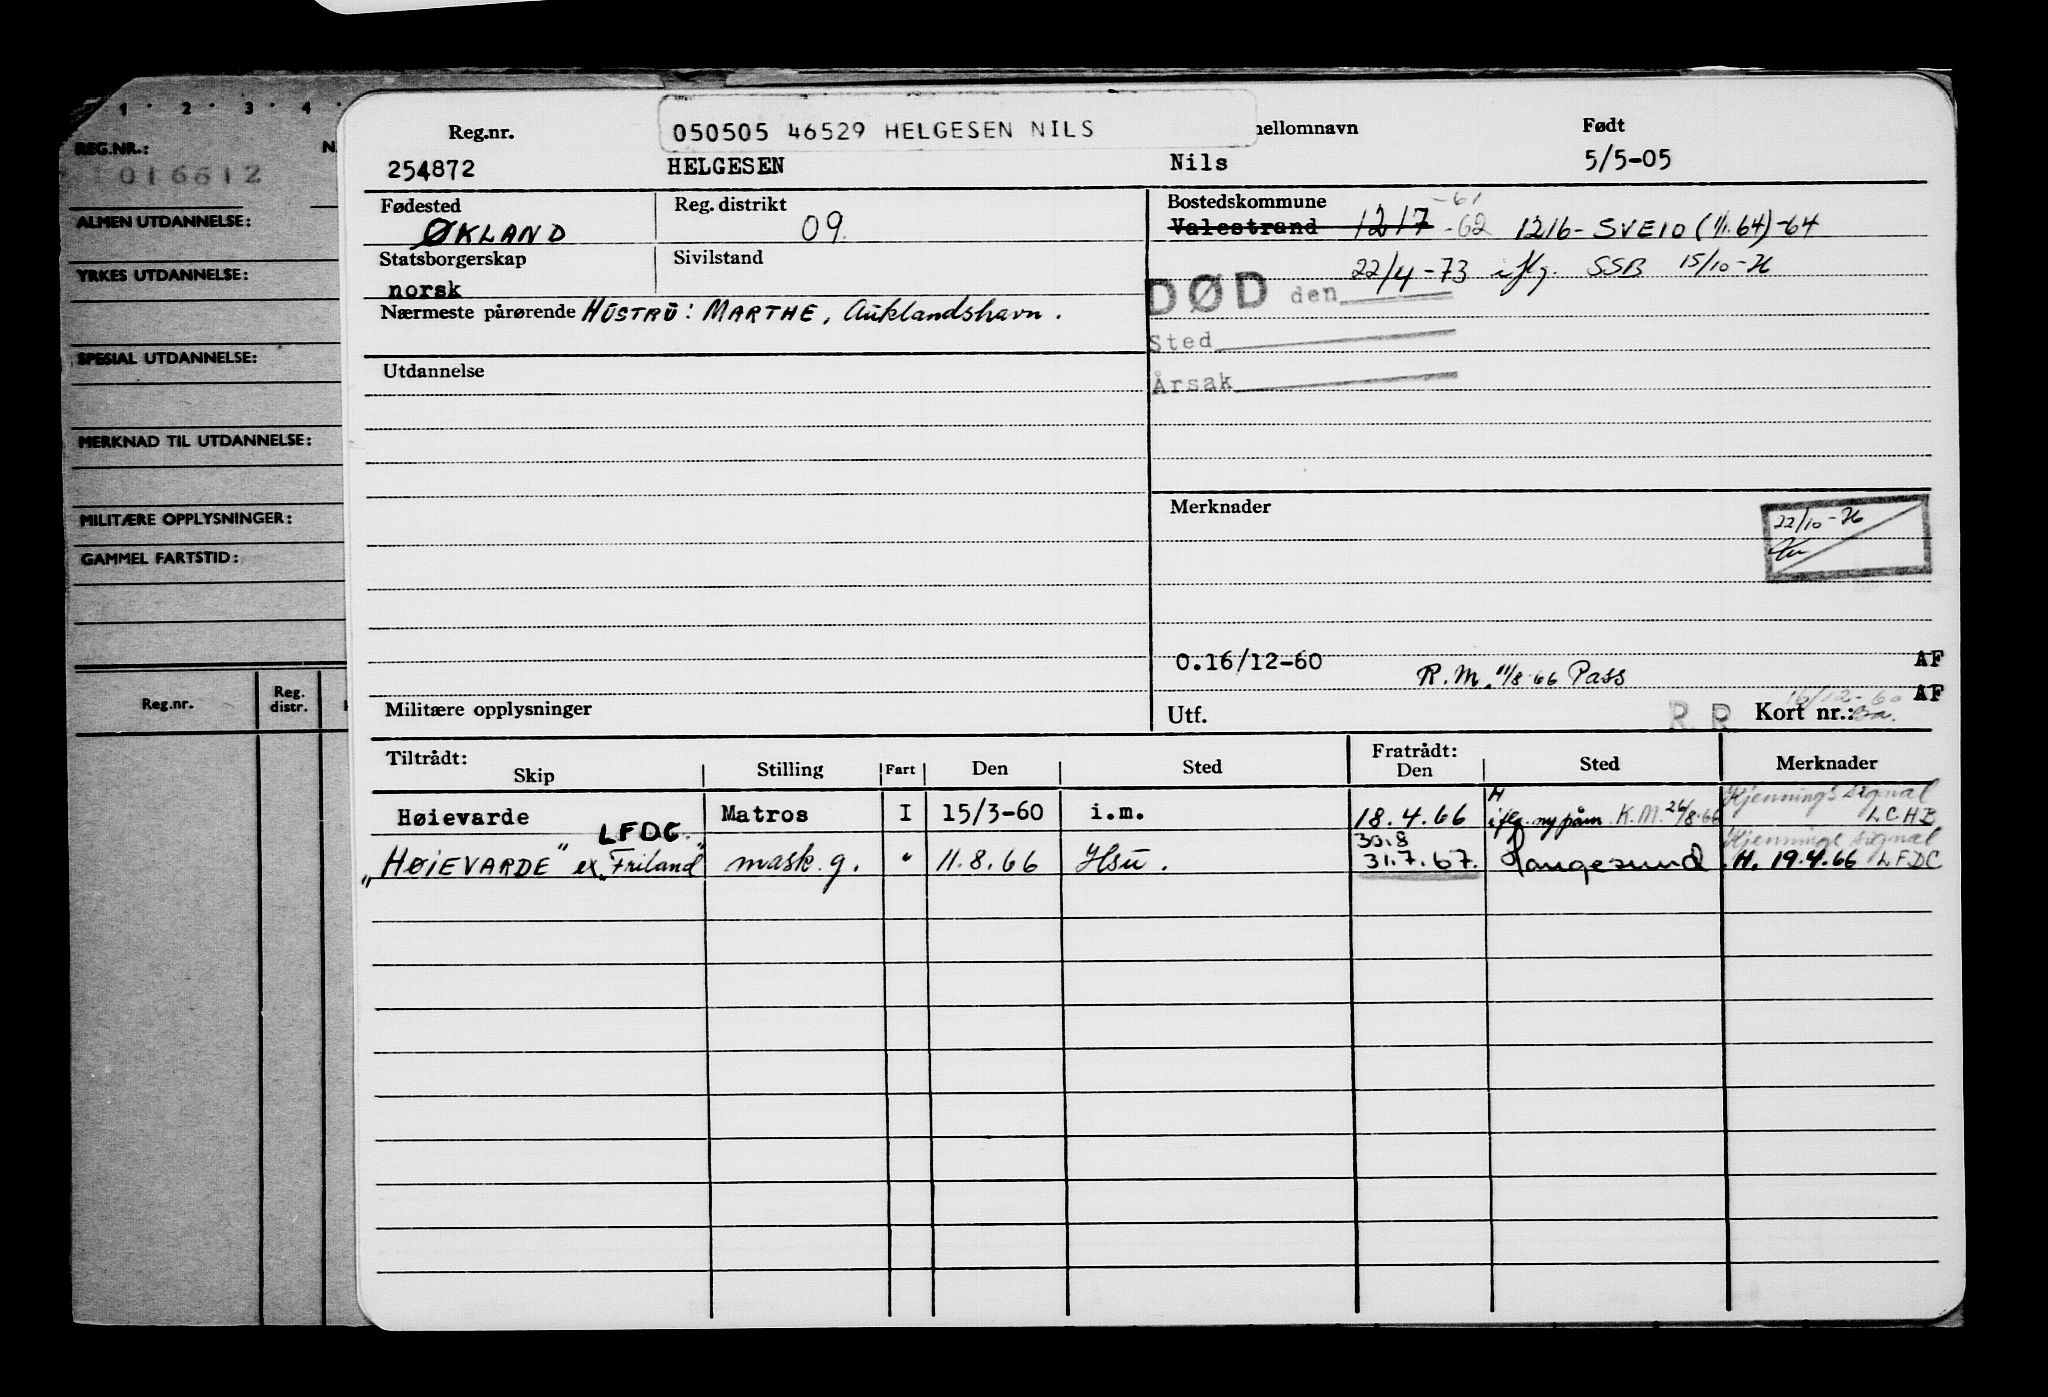 1 · 2 · 3 · 4 ·
REG.NR.:
016612
ALMEN UTDANNELSE:
YRKES UTDANNELSE:
SPESIAL UTDANNELSE:
MERKNAD TIL UTDANNELSE:
MILITÆRE OPPLYSNINGER:
GAMMEL FARTSTID:
Reg.nr. Reg. distr.
050505 46529 HELGESEN NILS
Reg.nr. mellomnavn Født
254872 HELGESEN Nils 5/5-05
Fødested Reg. distrikt Bostedskommune -61
ØKLAND 09. Valestrand 1217 -62 1216- SVEIO (1/1.64)-64
Statsborgerskap Sivilstand
norsk
22/4-73 iflg. SSB 15/10-76
DØD den
Nærmeste pårørende HUSTRU: MARTHE, Auklandshavn.
Sted
Årsak
Utdannelse
Merknader
22/10-76
0.16/12-60 AF
R.M. 11/8.66 Pass
AF
Militære opplysninger Utf. R R Kort nr.: 16/12-60
Tiltrådt: Fratrådt:
Skip Stilling Fart Den Sted Den Sted Merknader
Høievarde Matros I 15/3-60 i.m. 18.4.66 H iflg. ny påm. K.M. 26/8.66 Kjennings signal LCHB
LFDC
30.8
"HØIEVARDE" ex "Friland" mask.g. " 11.8.66 Hsu. 31.7.67. Haugesund Kjennings signal H. 19.4.66 LFDC